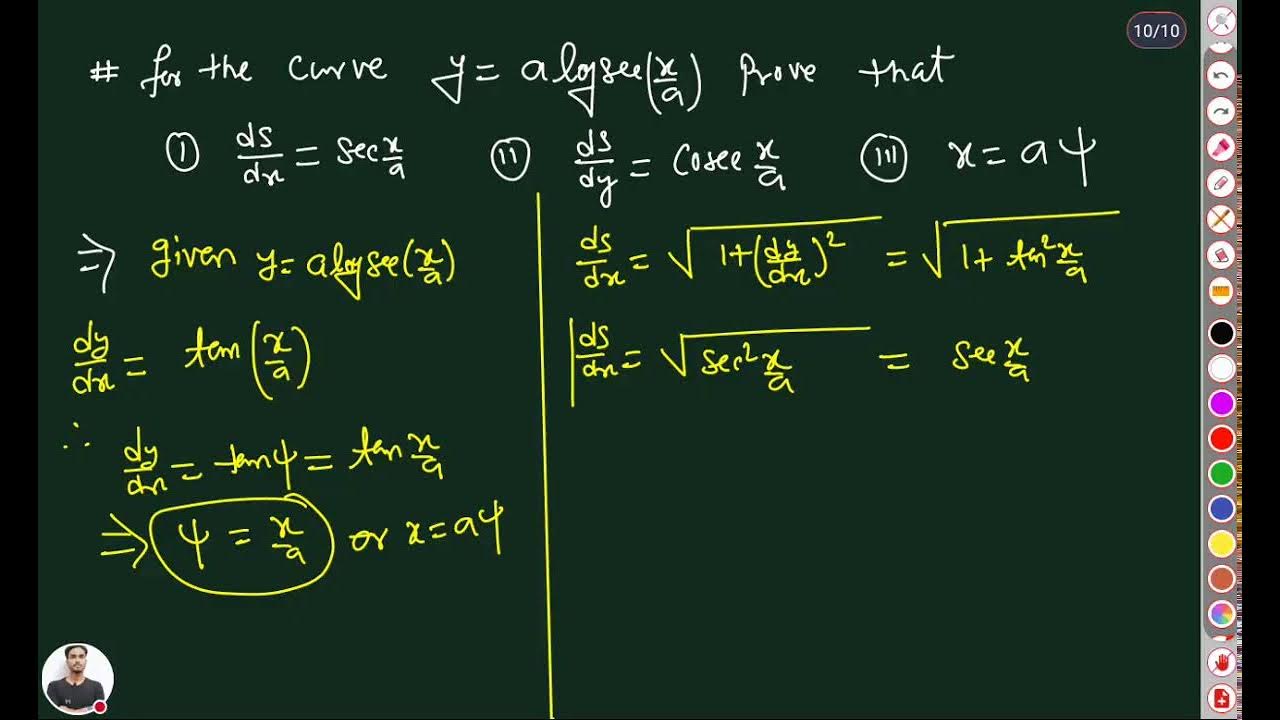 10/10
# for the curve y = a log sec(x/a) Prove that
(i) ds/dx = sec x/a (ii) ds/dy = cosec x/a (iii) x = aψ
⇒ given y = a log sec(x/a)
dy/dx = tan(x/a)
∴ dy/dx = tanψ = tan x/a
⇒ ψ = x/a or x = aψ
ds/dx = √(1+(dy/dx)²) = √(1+ tan² x/a)
ds/dx = √(sec² x/a) = sec x/a